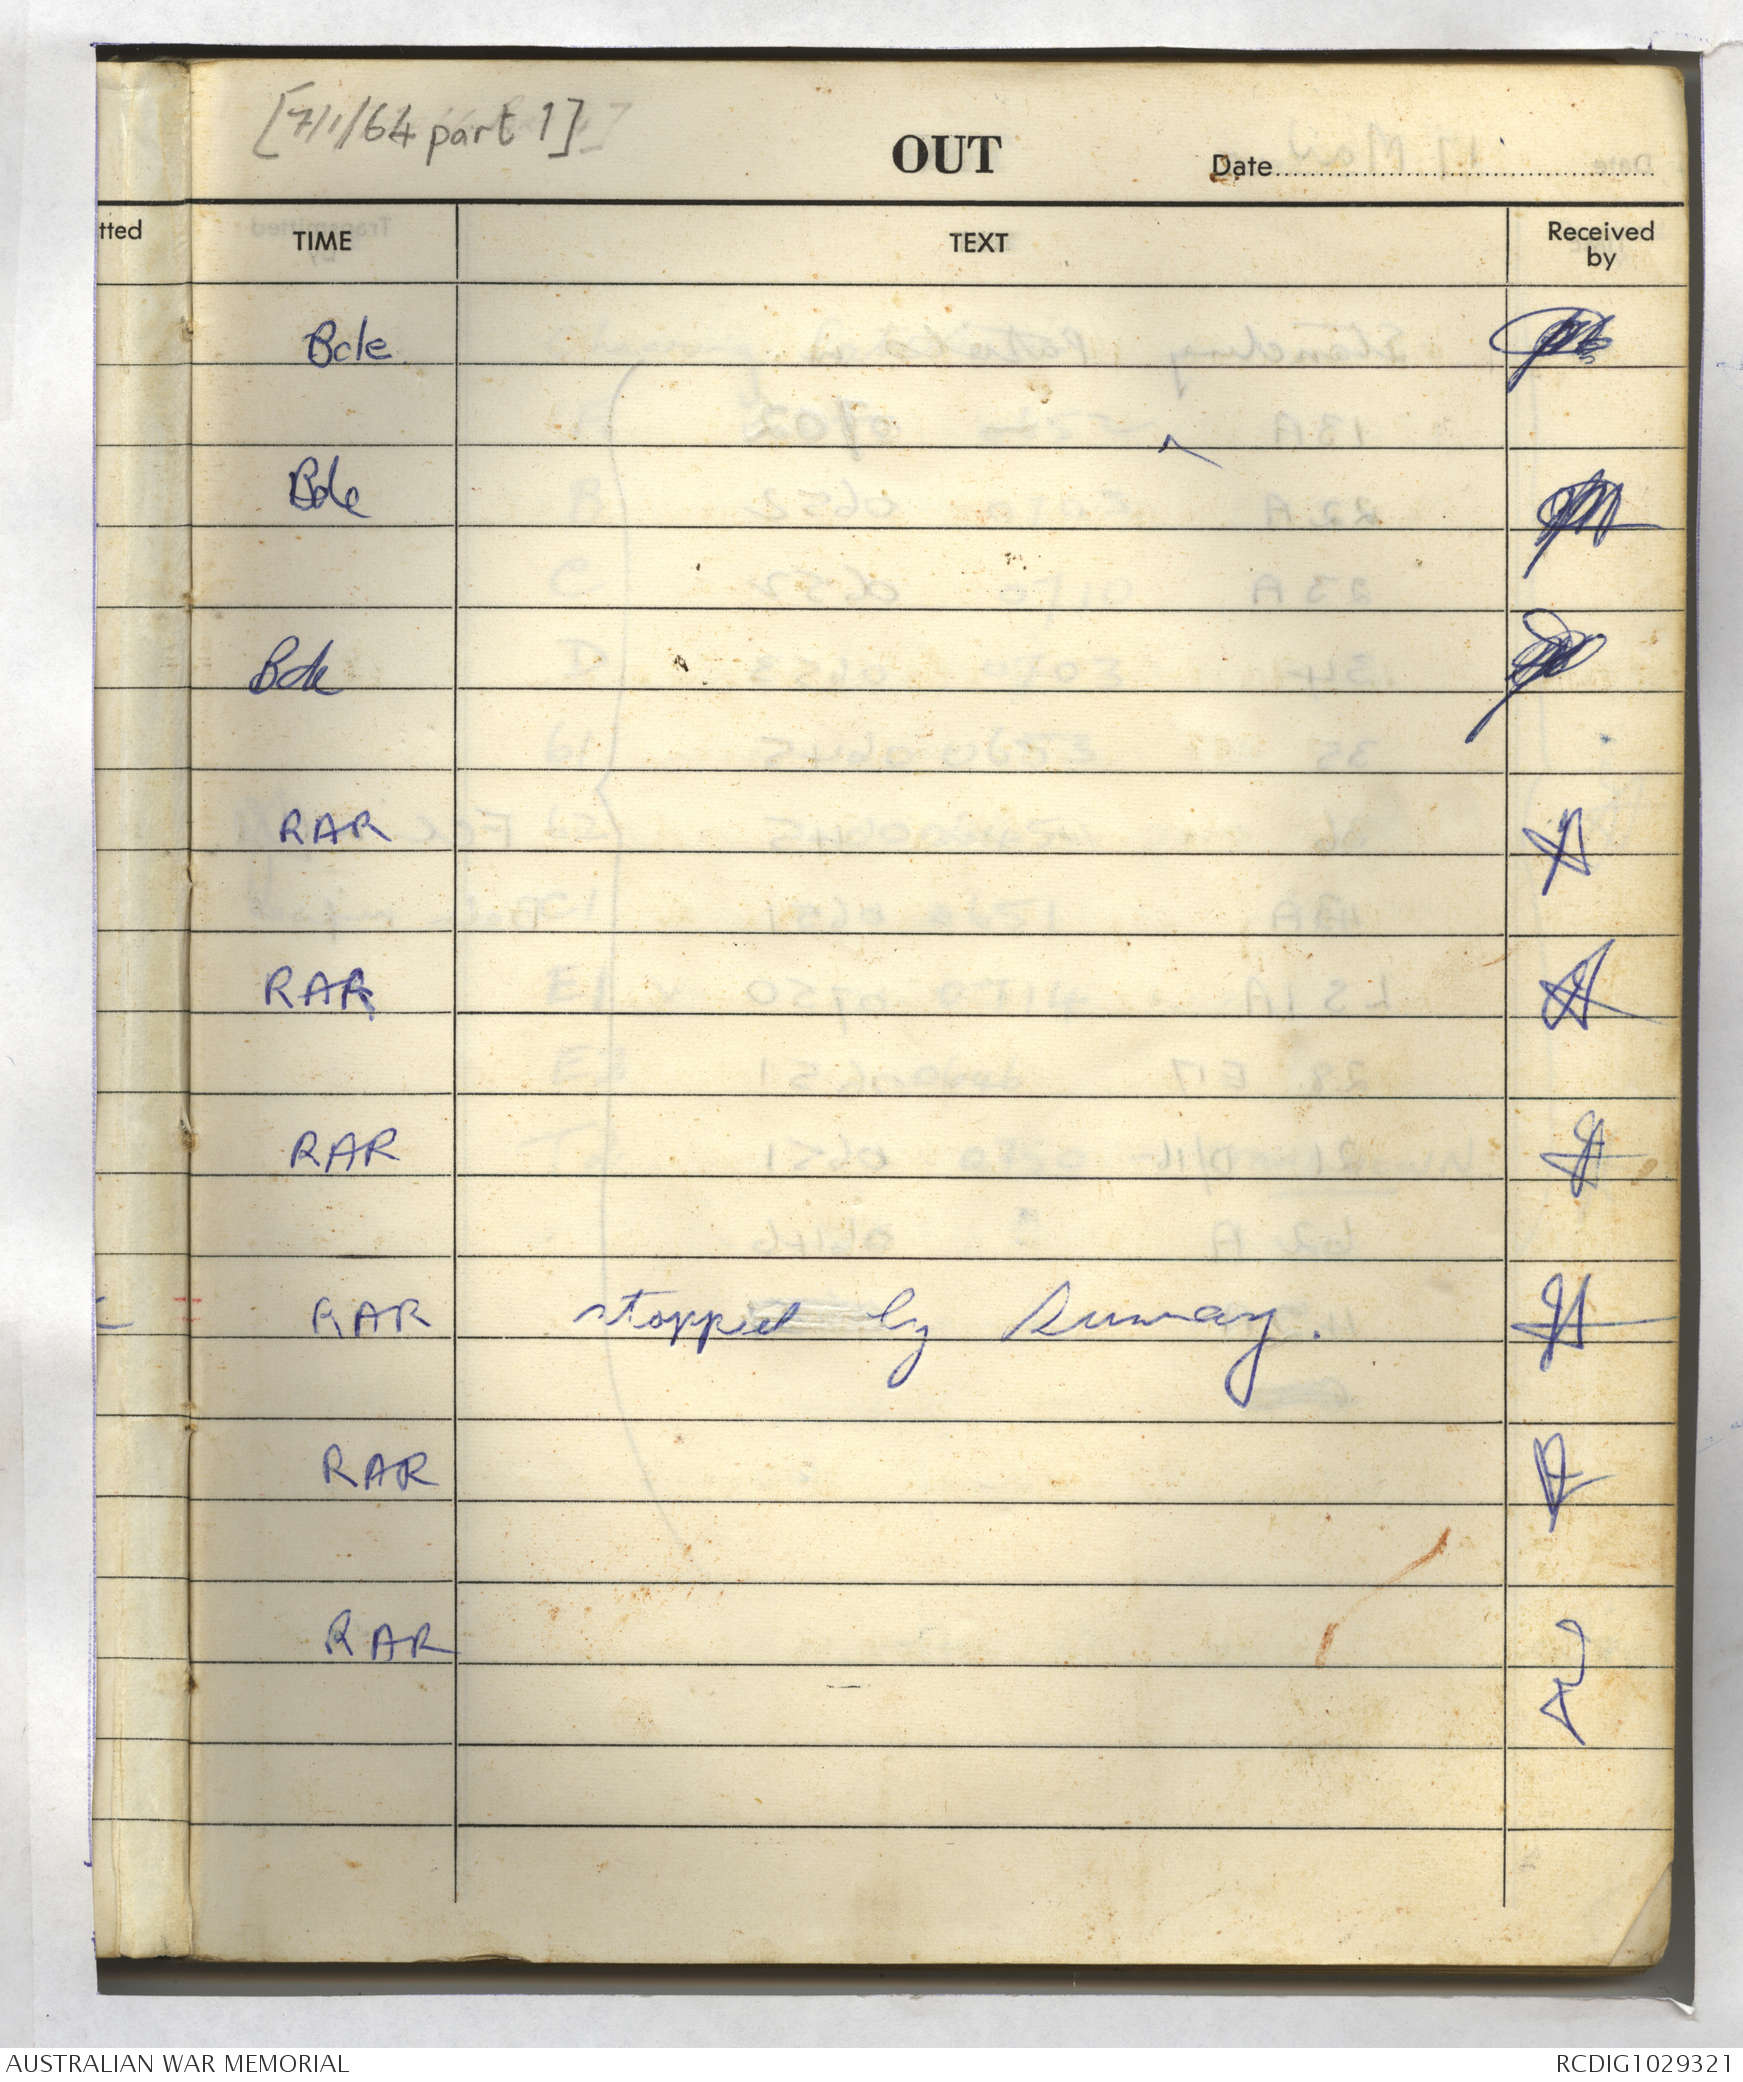 [7/1/64 part 1]
OUT
Date
tted
TIME
TEXT
Received
by
Bde
Bde
Bde
RAR
RAR
RAR
RAR stopped by Runway.
RAR
RAR
AUSTRALIAN WAR MEMORIAL
RCDIG1029321